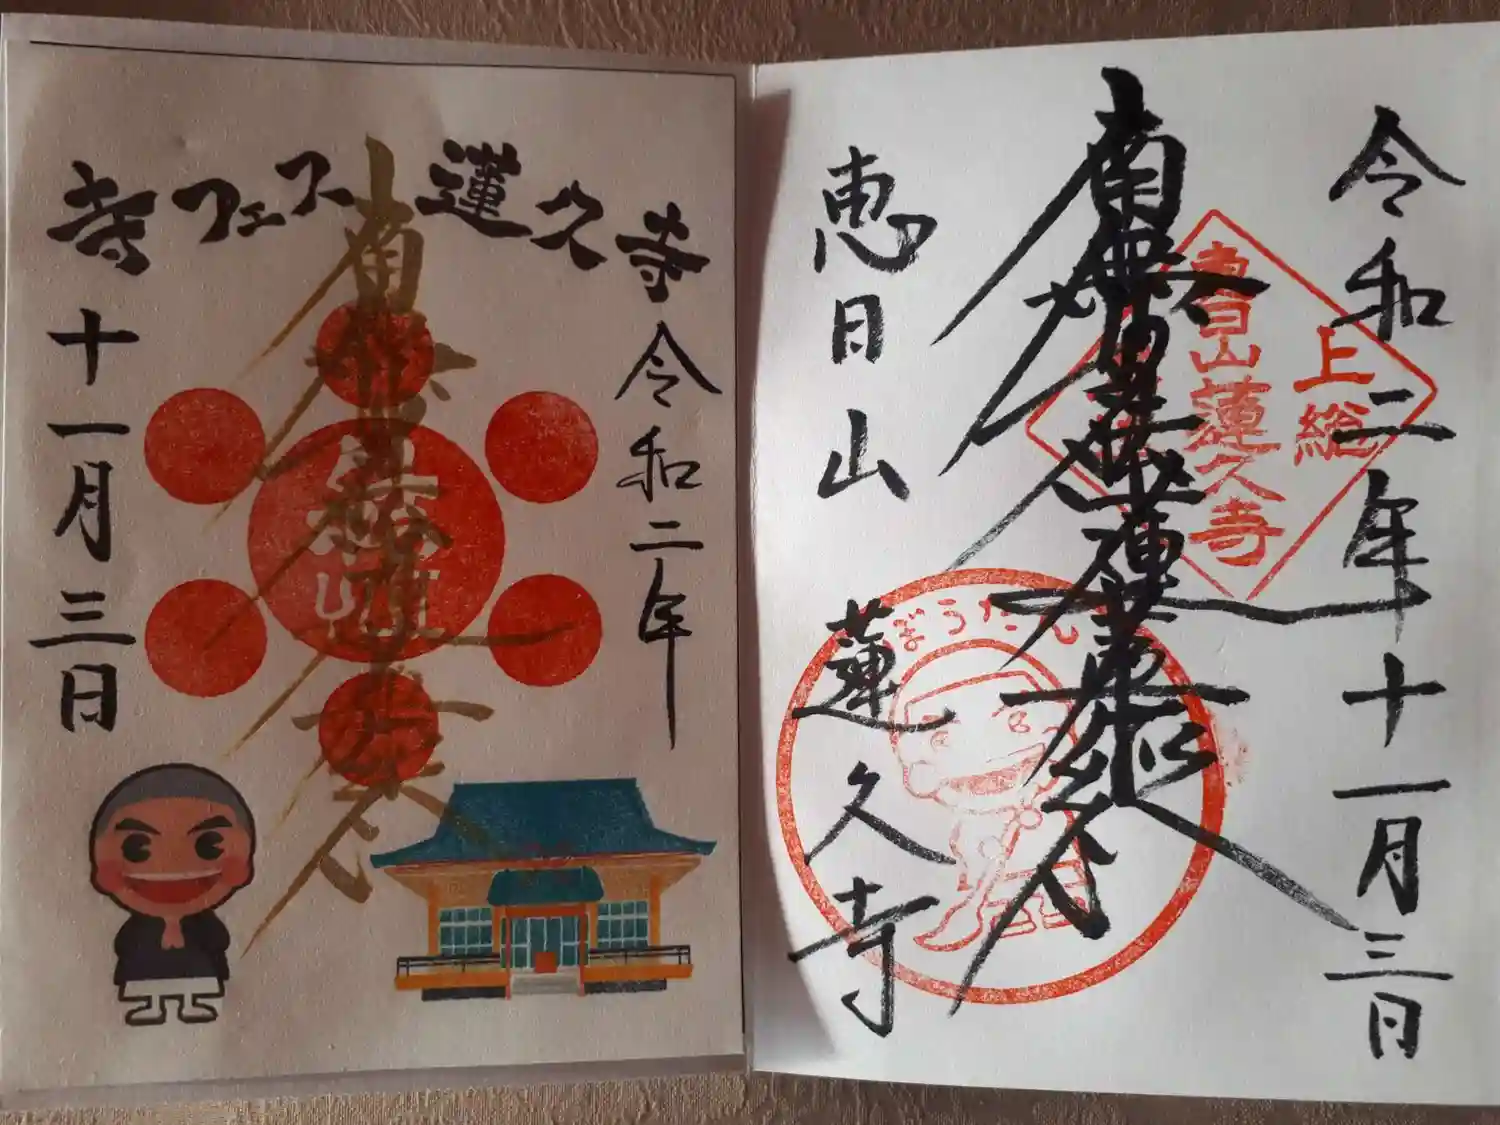 令和二年十一月三日
南無妙法蓮華経
上総
恵日山蓮久寺
ぼうたん
恵日山 蓮久寺
寺フェス 蓮久寺
令和二年
南無妙法蓮華経
十一月三日